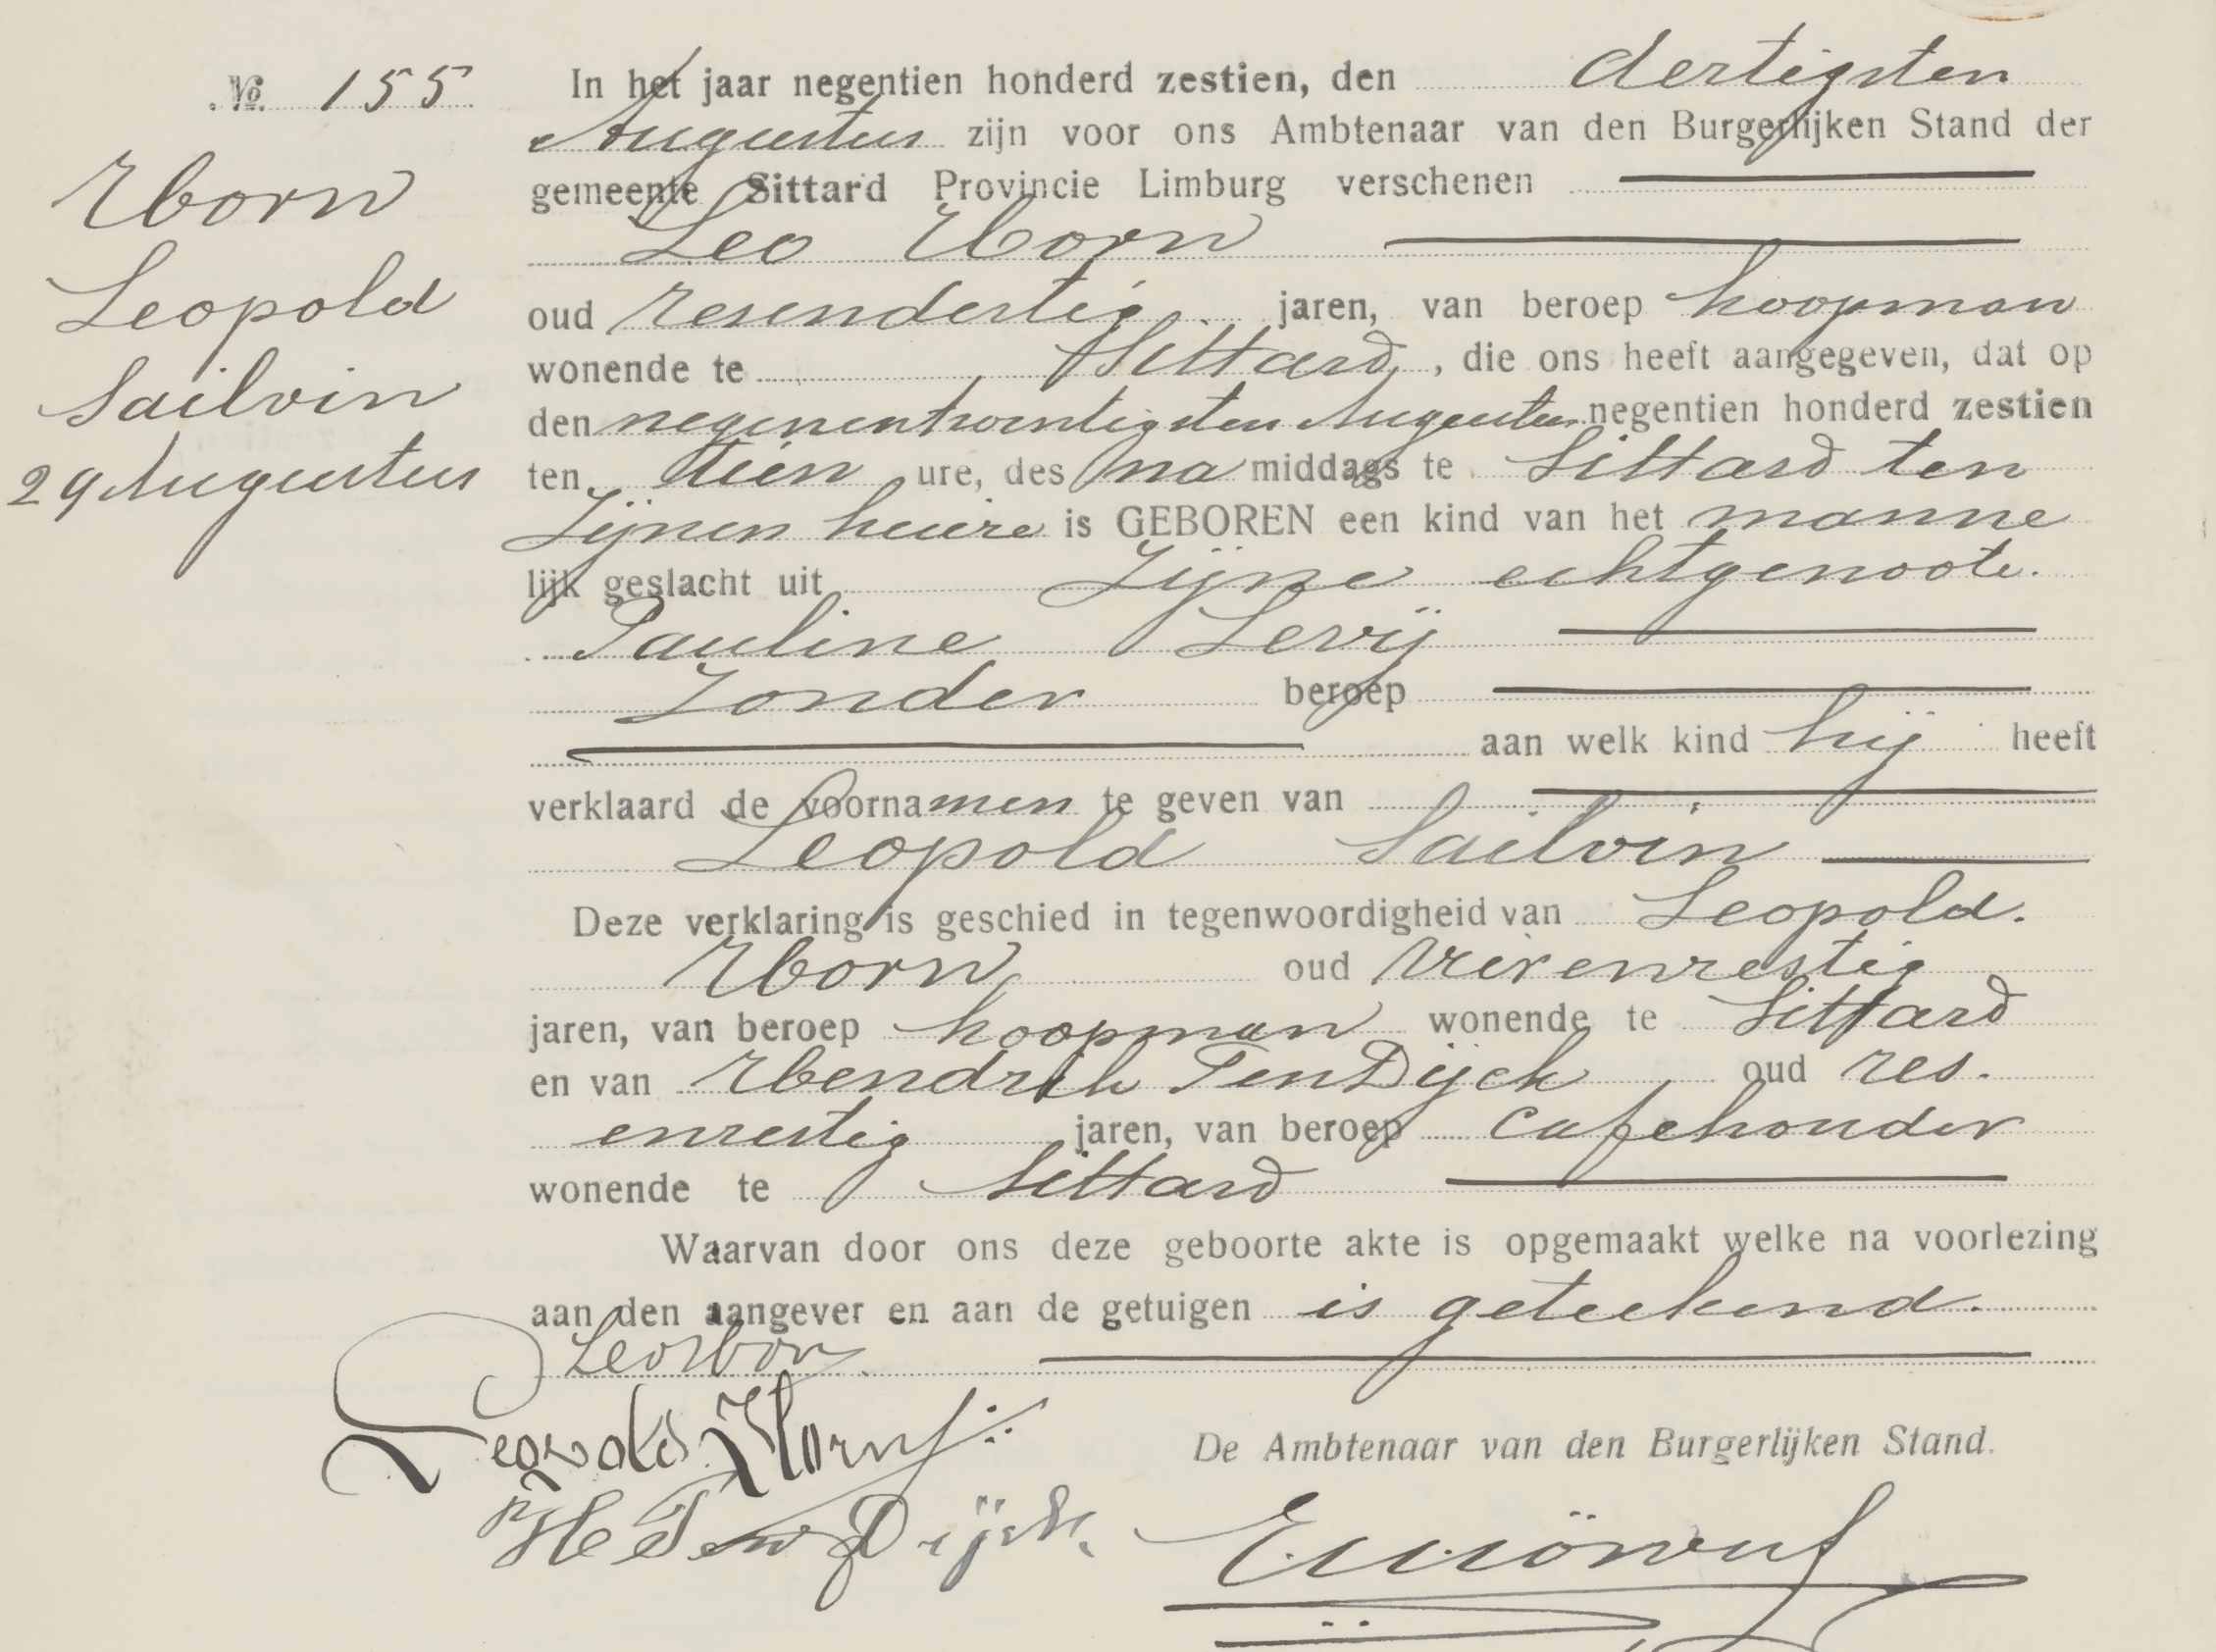 № 155
Horn
Leopold
Sailvin
29 Augustus
In het jaar negentien honderd zestien, den dertigsten
Augustus zijn voor ons Ambtenaar van den Burgerlijken Stand der
gemeente Sittard Provincie Limburg verschenen
Leo Horn
oud zesendertig jaren, van beroep koopman
wonende te Sittard, die ons heeft aangegeven, dat op
den negenentwintigsten Augustus negentien honderd zestien
ten tien ure, des na middags te Sittard ten
zijnen huize is GEBOREN een kind van het manne
lijk geslacht uit zijne echtgenoote.
Pauline Levij
zonder beroep
aan welk kind hij heeft
verklaard de voornamen te geven van
Leopold Sailvin
Deze verklaring is geschied in tegenwoordigheid van Leopold.
Horn oud vierenzestig
jaren, van beroep koopman wonende te Sittard
en van Hendrik Ten Dijck oud zes.
enzestig jaren, van beroep cafehouder
wonende te Sittard
Waarvan door ons deze geboorte akte is opgemaakt welke na voorlezing
aan den aangever en aan de getuigen is geteekend.
Leo Horn
Leopold Horn
H Ten Dijck
De Ambtenaar van den Burgerlijken Stand.